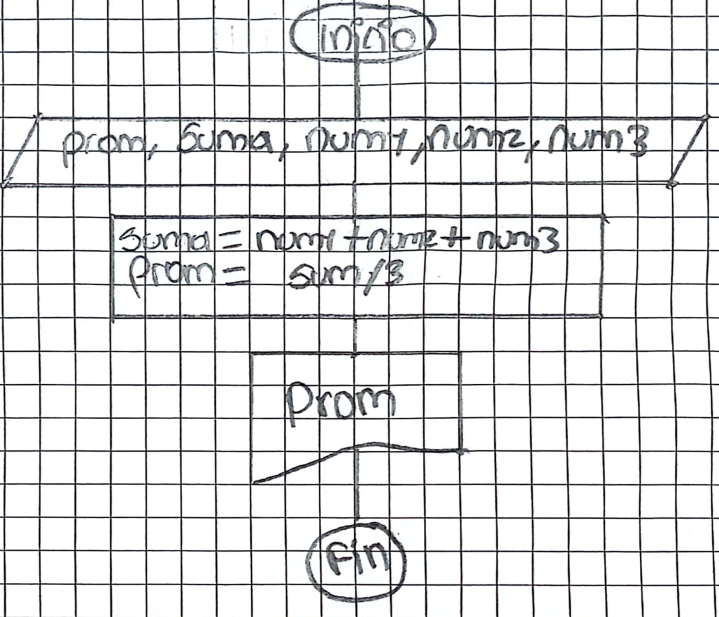 inicio
prom, suma, num1, num2, num3
suma = num1 + num2 + num3
Prom = sum/3
Prom
Fin